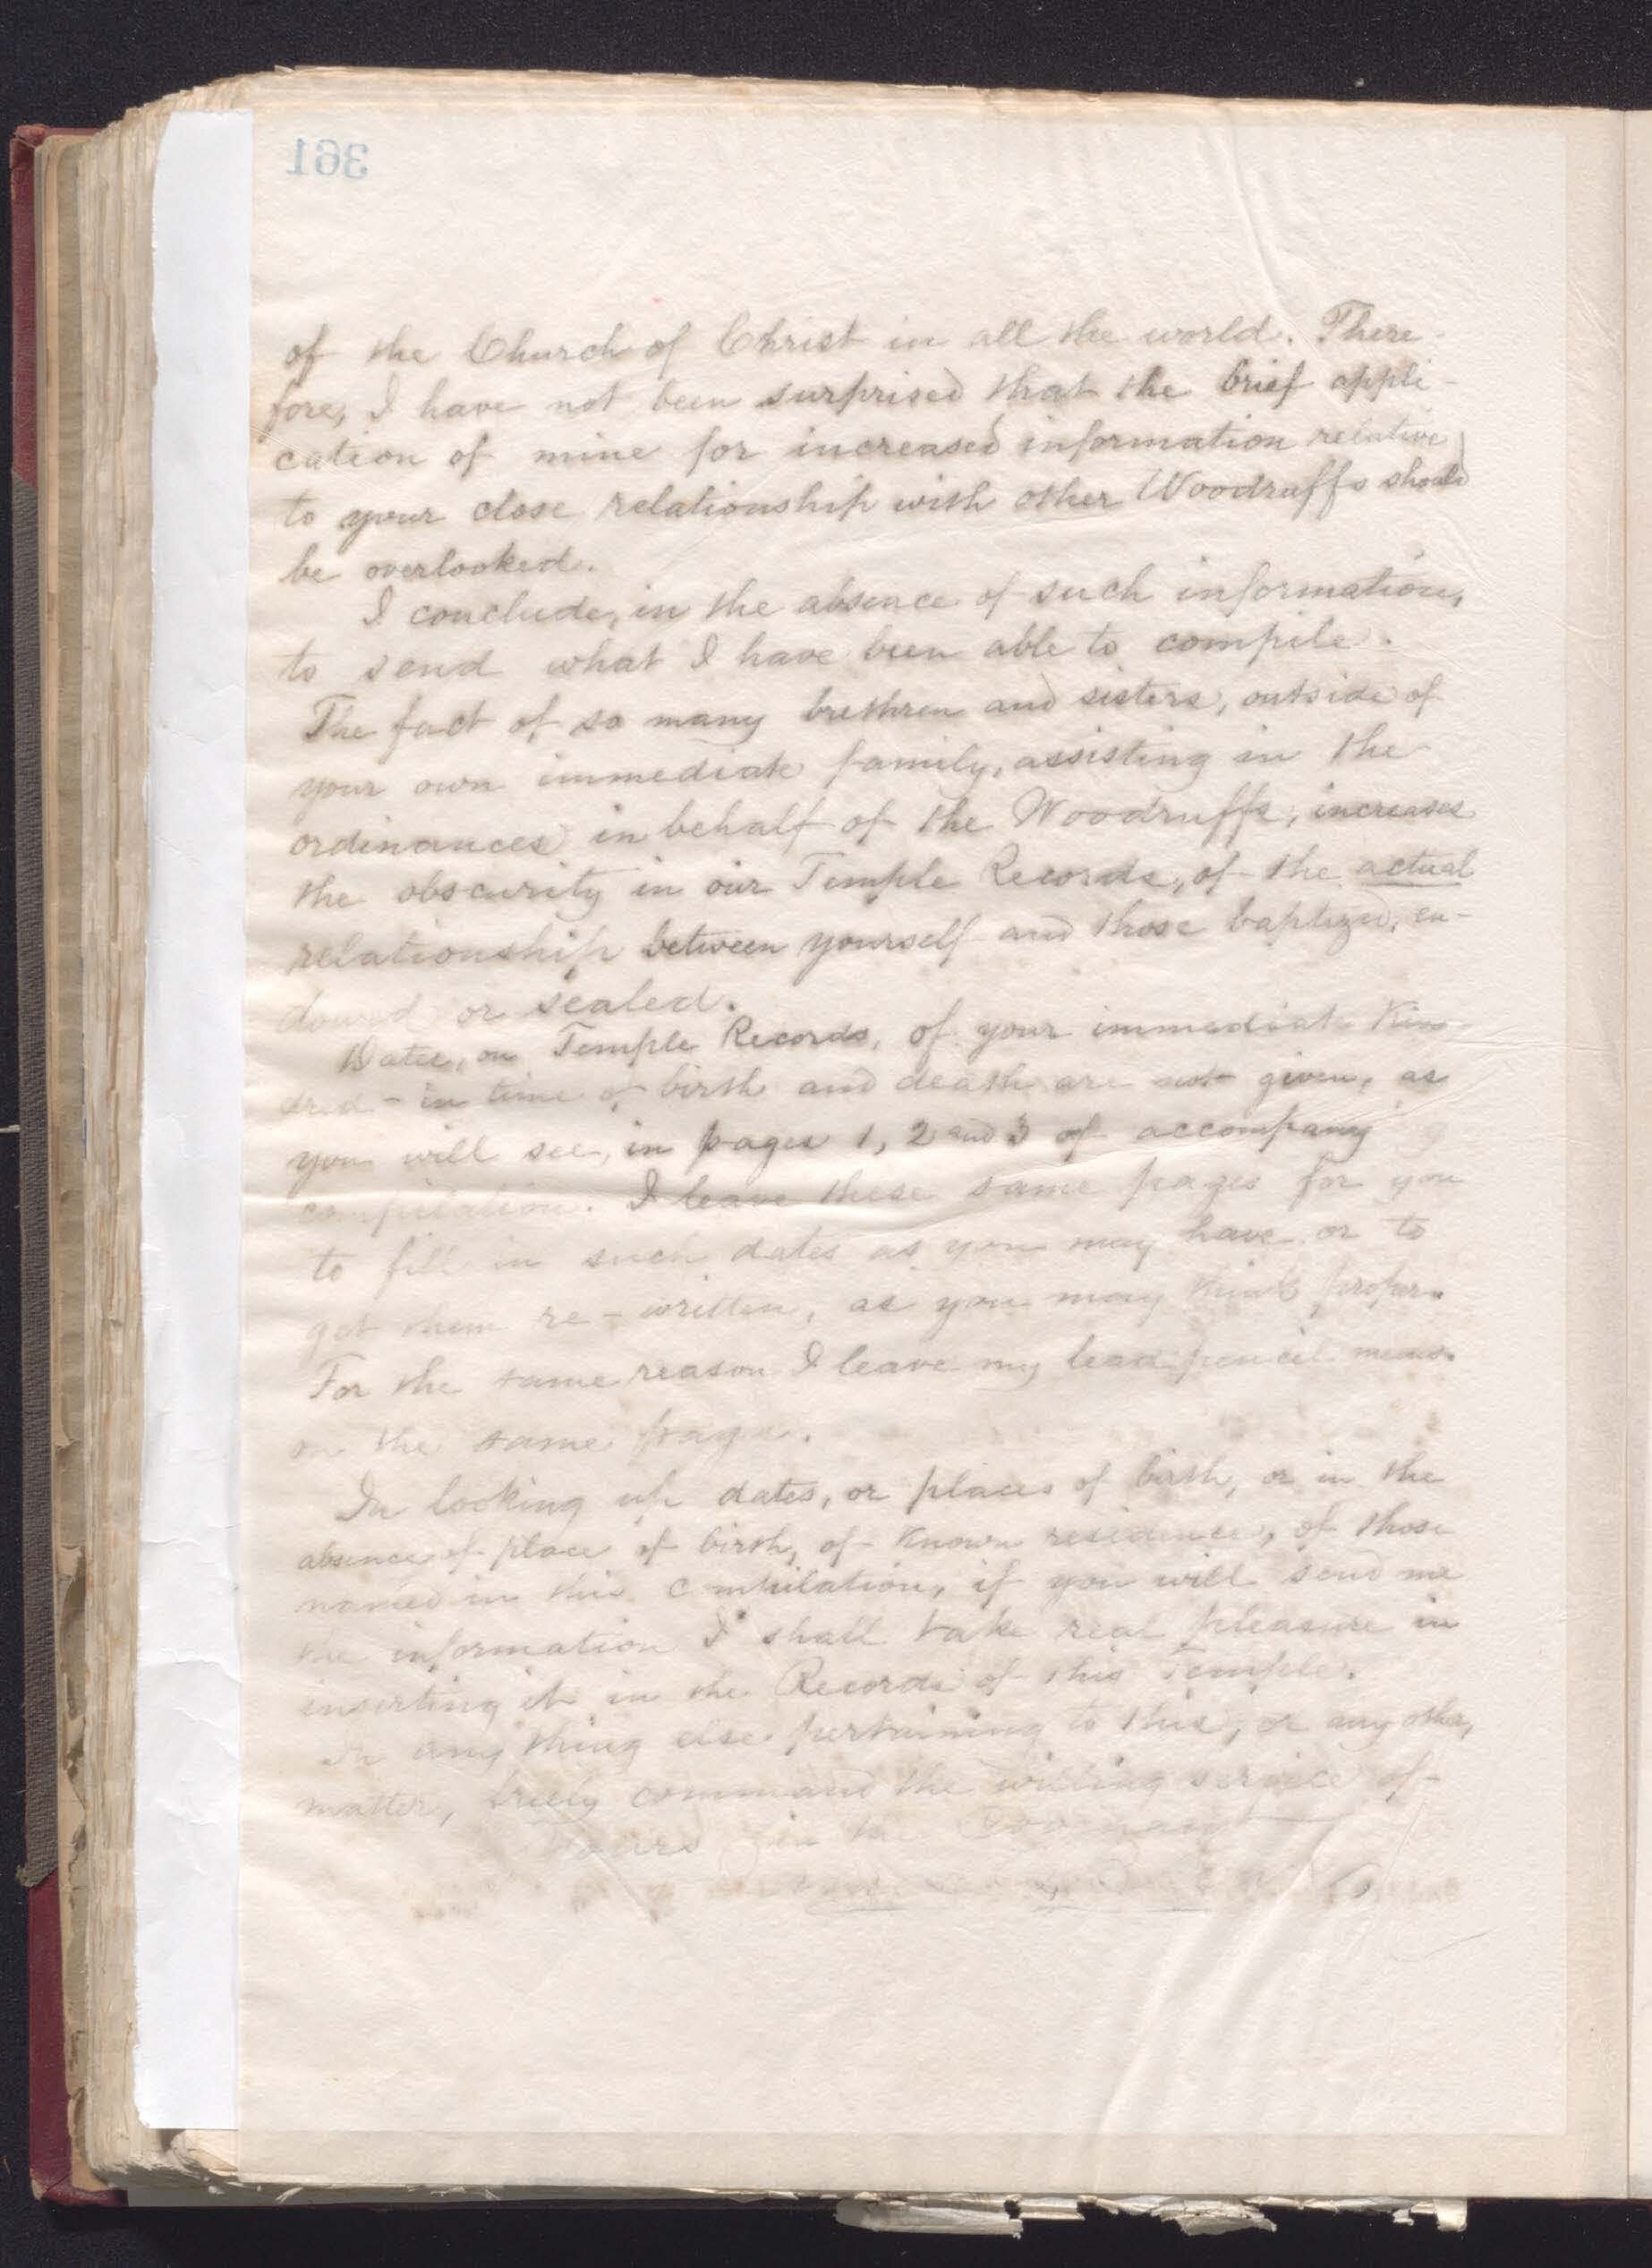 361
of the Church of Christ in all the world. There-
fore, I have not been surprised that the brief appli-
cation of mine for increased information relative
to your close relationship with other Woodruffs should
be overlooked.
I conclude, in the absence of such information,
to send what I have been able to compile.
The fact of so many brethren and sisters, outside of
your own immediate family, assisting in the
ordinances in behalf of the Woodruffs, increases
the obscurity in our Temple Records, of the actual
relationship between yourself and those baptized, en-
dowed or sealed.
Dates, on Temple Records, of your immediate Kin-
dred - in time of birth and death are not given, as
you will see, in pages 1, 2 and 3 of accompany
compilation. I leave these same pages for you
to fill in such dates as you may have or to
get them re-written, as you may think proper.
For the same reason I leave my lead pencil mems.
on the same pages.
In looking up dates, or places of birth, or in the
absence of place of birth, of known residence, of those
named in this compilation, if you will send me
the information I shall take real pleasure in
inserting it in the Records of this Temple.
In any thing else pertaining to this, or any other,
matter, freely command the willing service of
Yours in the Covenant